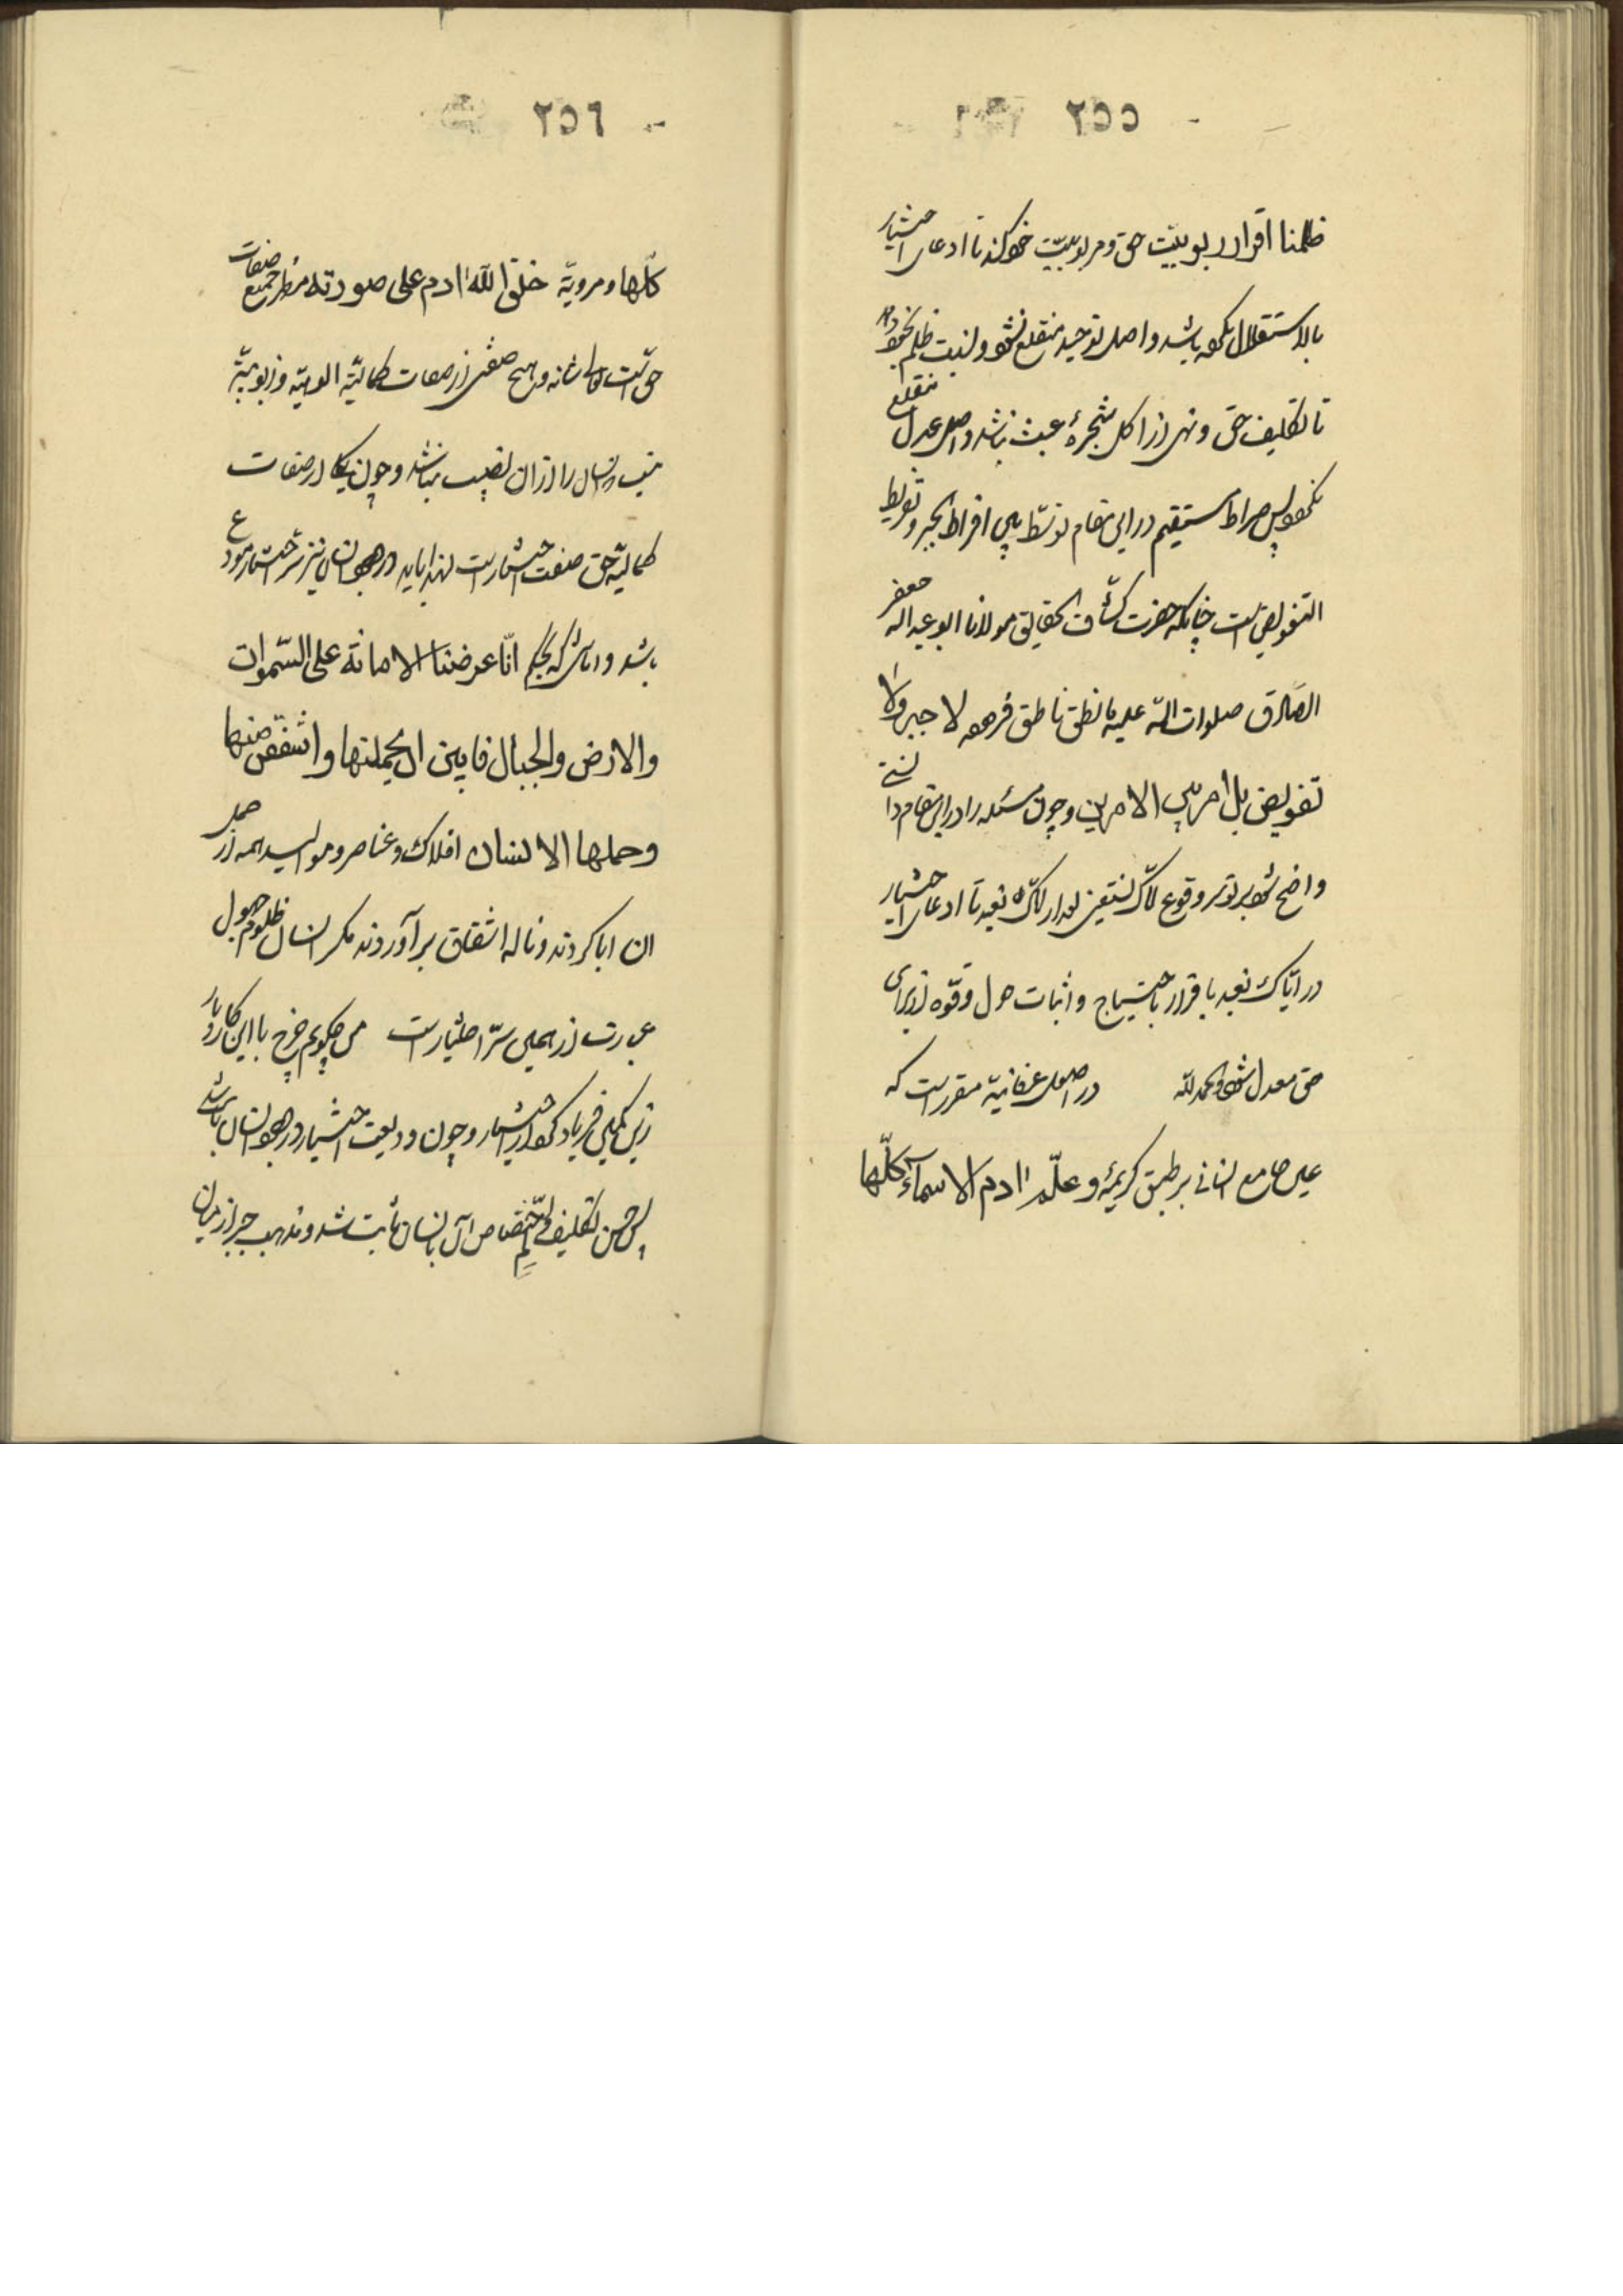 ٢٥٥
ظلمنا اقرار بربوبیّت حق و مربوبیّت خود کند تا ادعای اختیار
بالاستقلال نکرده باشد و اصل توحید منقلع نشود و نسبت ظلم بخود داد
تا تکلیف حق و نهی از اکل شجرهٔ عبث نباشد و اصل عدل منقلع
نگردد پس صراط مستقیم در این مقام توسّط بین افراط الجبر و تفریط
التفویض است چنانکه حضرت کشّاف الحقایق مولانا ابو عبد الله جعفر
الصّادق صلوات الله علیه ما نطق ناطق فرموده لا جبر ولا
تفویض بل امر بین الامرین و چون مسئله را در این مقام دانستی
واضح شود بر تو سر وقوع ایّاک نستعین بعد از ایّاک نعبد تا ادعای اختیار
در ایّاک نعبد باقرار باحتیاج و اثبات حول و قوّه از برای
حق معدل شود والحمد لله در اصول عرفانیّه مقرر است که
عین جامع انسانی بر طبق کریمهٔ و علّم ادم الاسمآء کلّها
٢٥٦
کلّها و مرویّه خلق الله ادم علی صورته مظهر جمیع صفات
حق است تعالی شانه و هیچ صفتی از صفات کمالیّه الوهیّه و ربوبیّة
نیست انسان را از ان نصیب نباشد و چون یکی از صفات
کمالیّه حق صفت اختیار است لهذا باید در وجود انسان نیز سرّ اختیار مودع
باشد و انسان که بحکم انّا عرضنا الامانة علی السّموات
والارض والجبال فابین ان یحملنها واشفقن منها
وحملها الانسان افلاک و عناصر و موالید همه از حمل
ان ابا کردند و ناله اشفاق برآوردند مگر انسان ظلوم جهول
عبارت از همین سرّ اختیار است من چگویم چرخ با این کار و بار
زین کمین فریاد کرد از اختیار و چون ودیعت اختیار در وجود انسان باشد
پس حسن تکلیف و اختصاص آن بانسان ثابت شد و مذهب جبر از میان